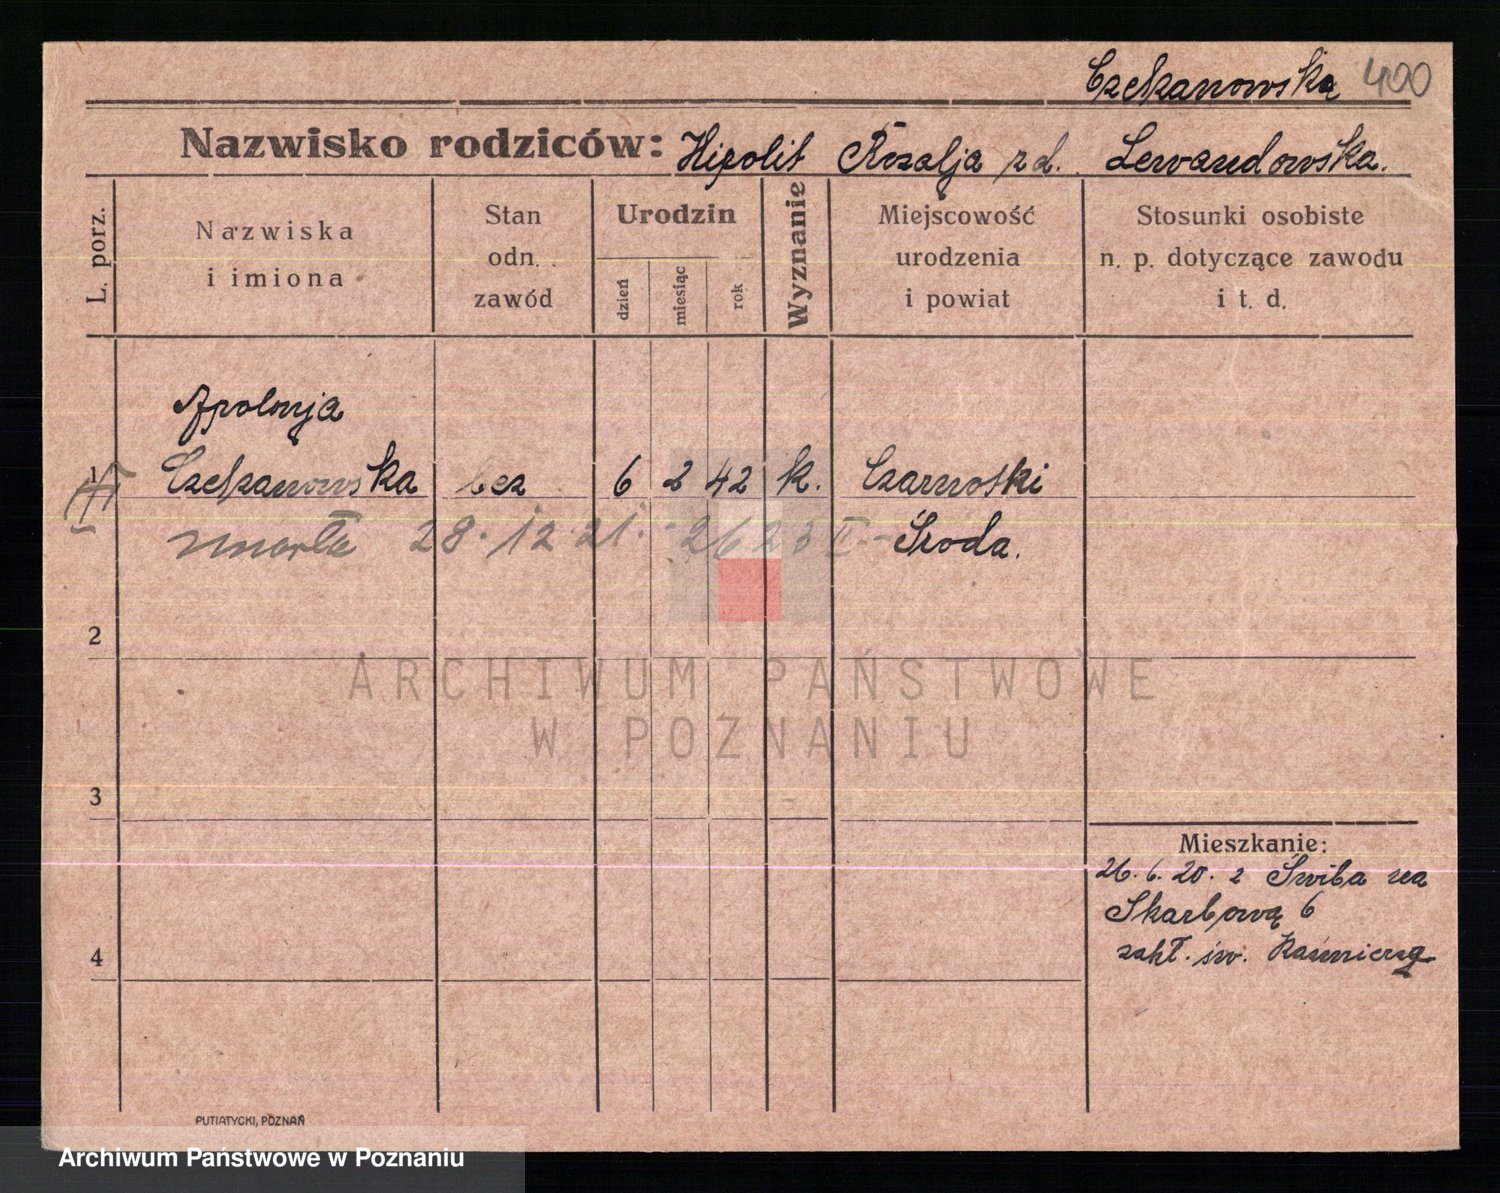 Czekanowska 400
Nazwisko rodziców: Hipolit Rozalja z d. Lewandowska.
L. porz.
Nazwiska
i imiona
Stan
odn.
zawód
Urodzin
dzień
miesiąc
rok
Wyznanie
Miejscowość
urodzenia
i powiat
Stosunki osobiste
n. p. dotyczące zawodu
i t. d.
Apolonja
1 Czekanowska bez 6 2 42 k. Czarnotki
zmarła 28.12.21. - 2623 II - Środa.
2
3
4
Mieszkanie:
26.6.20. z Śwиba na
Skarbową 6
zakł. św. Kaźmierza
PUTIATYCKI, POZNAŃ
ARCHIWUM PAŃSTWOWE
W POZNANIU
Archiwum Państwowe w Poznaniu